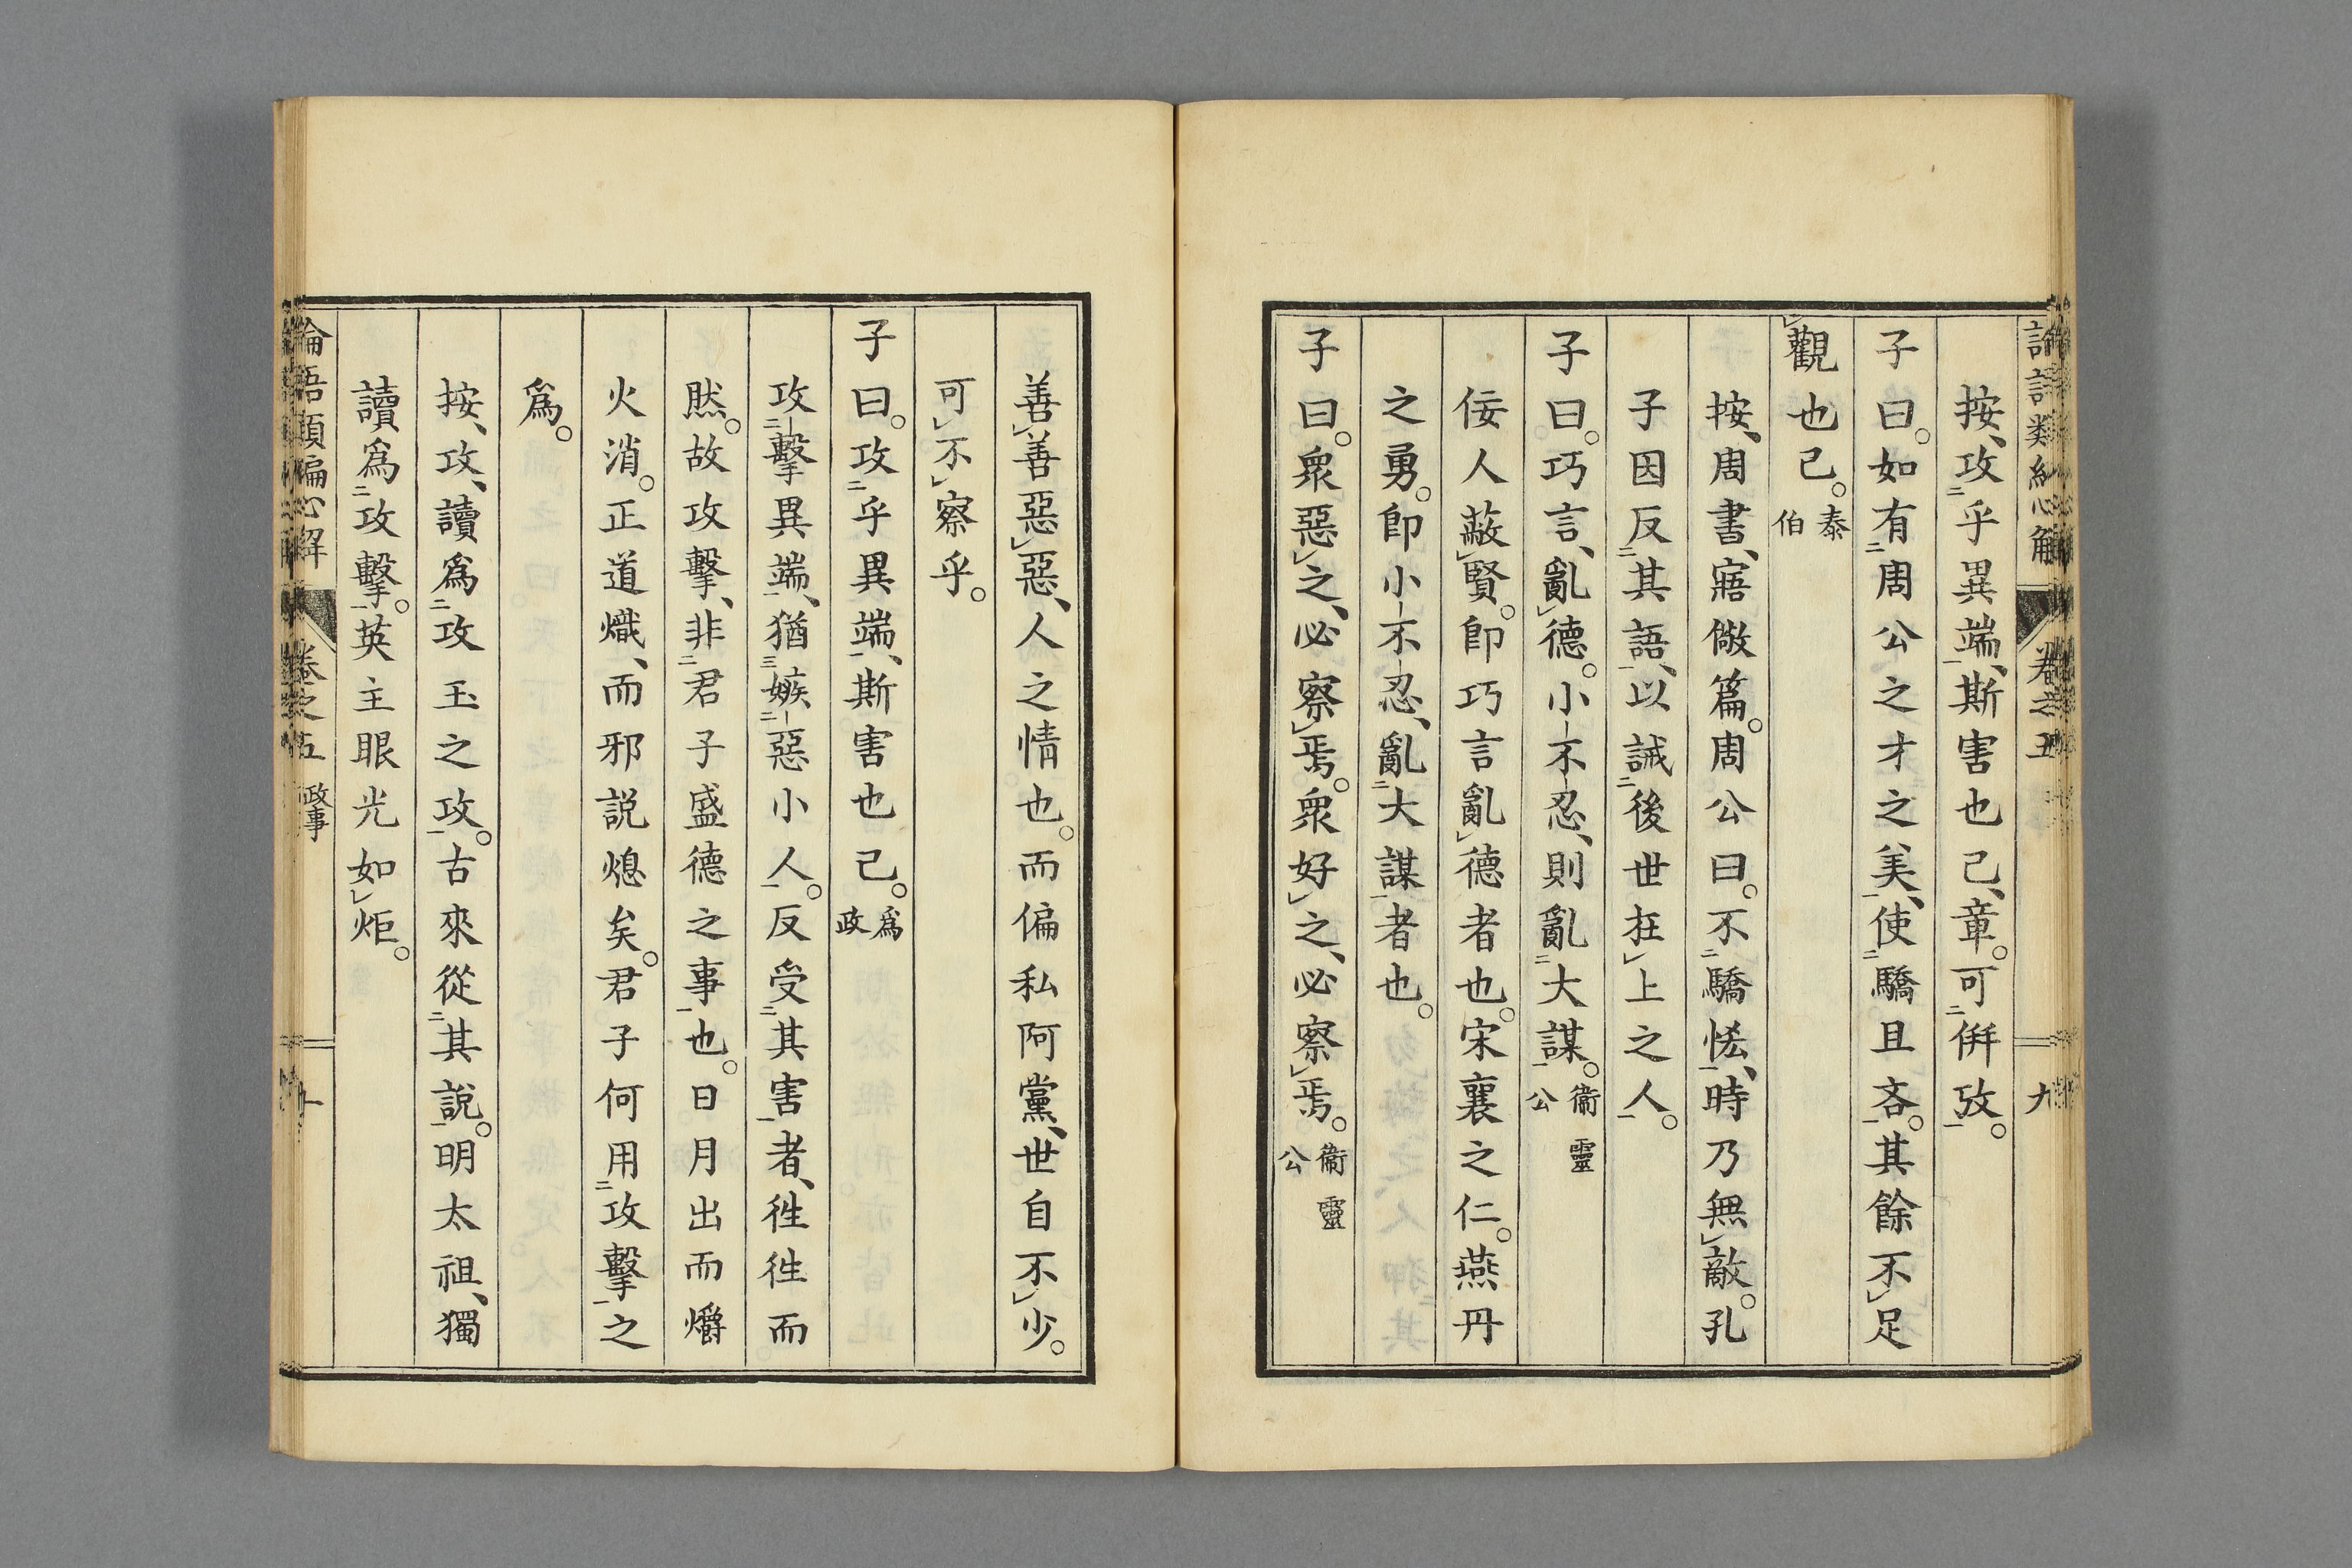 按、攻乎異端、斯害也已、章。可併攷。
子曰。如有周公之才之美、使驕且吝。其餘不足
觀也已。泰伯
按、周書、寤儆篇。周公曰。不驕悋、時乃無敵。孔
子因反其語、以誡後世在上之人。
子曰。巧言、亂德。小不忍、則亂大謀。衞靈公
佞人蔽賢。卽巧言亂德者也。宋襄之仁。燕丹
之勇。卽小不忍、亂大謀者也。
子曰。衆惡之、必察焉。衆好之、必察焉。衞靈公
善善惡惡、人之情也。而偏私阿黨、世自不少。
可不察乎。
子曰。攻乎異端、斯害也已。爲政
攻擊異端、猶嫉惡小人。反受其害者、徃徃而
然。故攻擊、非君子盛德之事也。日月出而爝
火消。正道熾、而邪説熄矣。君子何用攻擊之
爲。
按、攻、讀爲攻玉之攻。古來從其説。明太祖、獨
讀爲攻擊。英主眼光如炬。
卷之五 政事